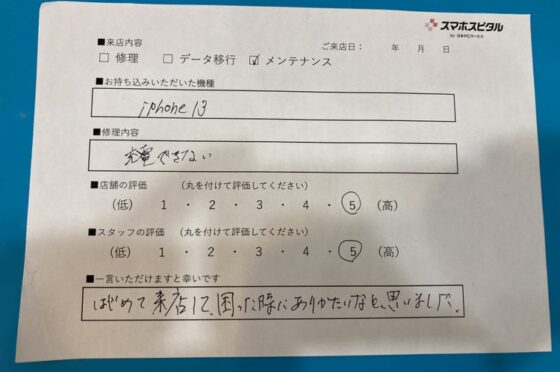 スマホスピタル
by 日本PCサービス
■来店内容 ご来店日： 年 月 日
□ 修理 □ データ移行 ☑ メンテナンス
■お持ち込みいただいた機種
iphone 13
■修理内容
充電できない
■店舗の評価 （丸を付けて評価してください）
（低） 1 ・ 2 ・ 3 ・ 4 ・ 5 （高）
■スタッフの評価 （丸を付けて評価してください）
（低） 1 ・ 2 ・ 3 ・ 4 ・ 5 （高）
■一言いただけますと幸いです
はじめて来店して、困った時にありがたいなと、思いました。